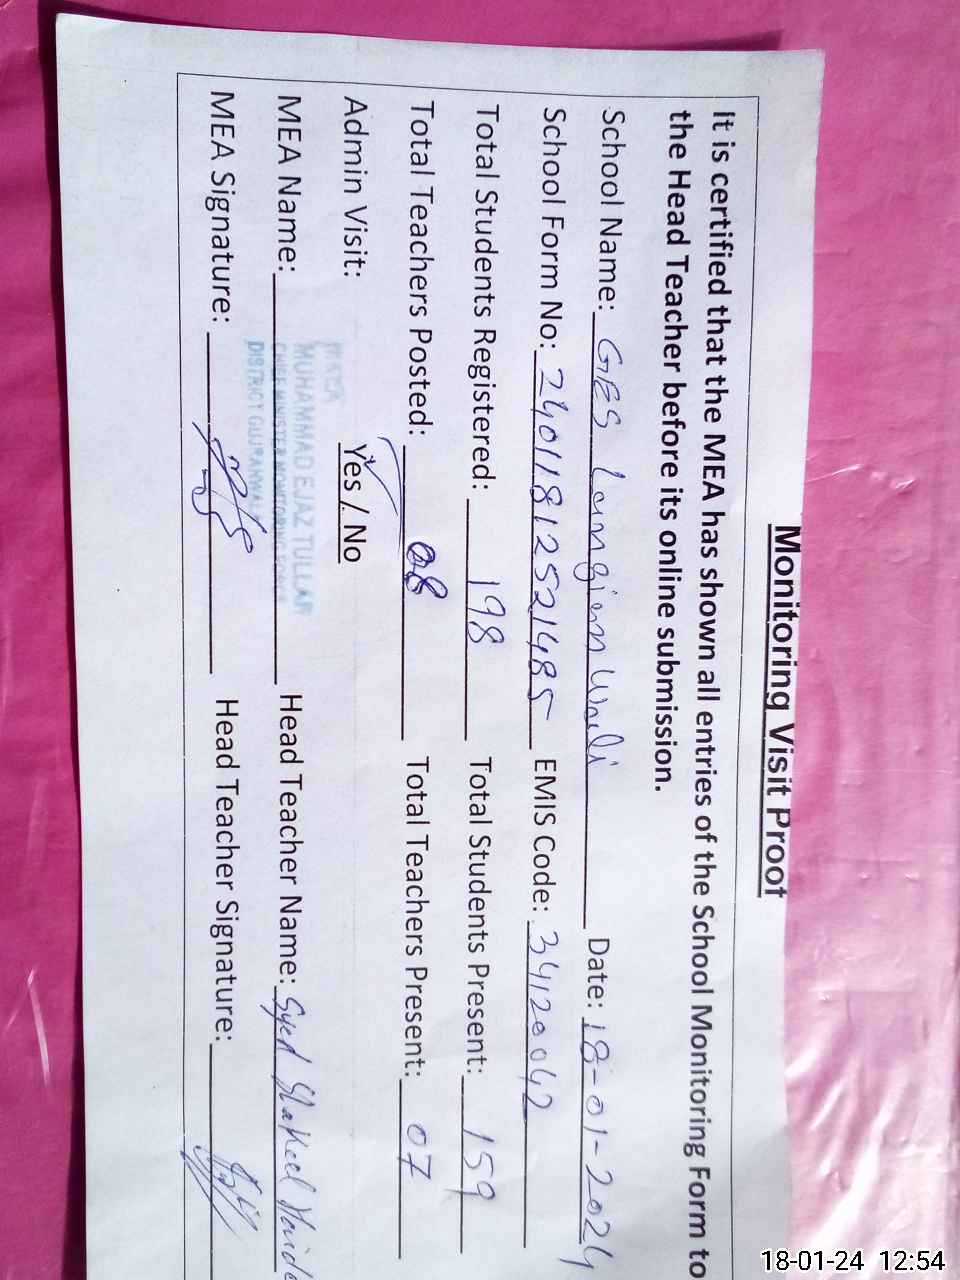 Monitoring Visit Proof
It is certified that the MEA has shown all entries of the School Monitoring Form to
the Head Teacher before its online submission.
School Name: GES Date: 18-01-2024
School Form No: 24011812521485 EMIS Code: 34120042
Total Students Registered: 198 Total Students Present: 159
Total Teachers Posted: 08 Total Teachers Present: 07
Admin Visit: Yes / No
MEA Name: Head Teacher Name: Syed Shakeel
MUHAMMAD EJAZ TULLAR
CHIEF MINISTER MONITORING FORCE
DISTRICT GUJRANWALA
MEA Signature: Head Teacher Signature:
18-01-24 12:54